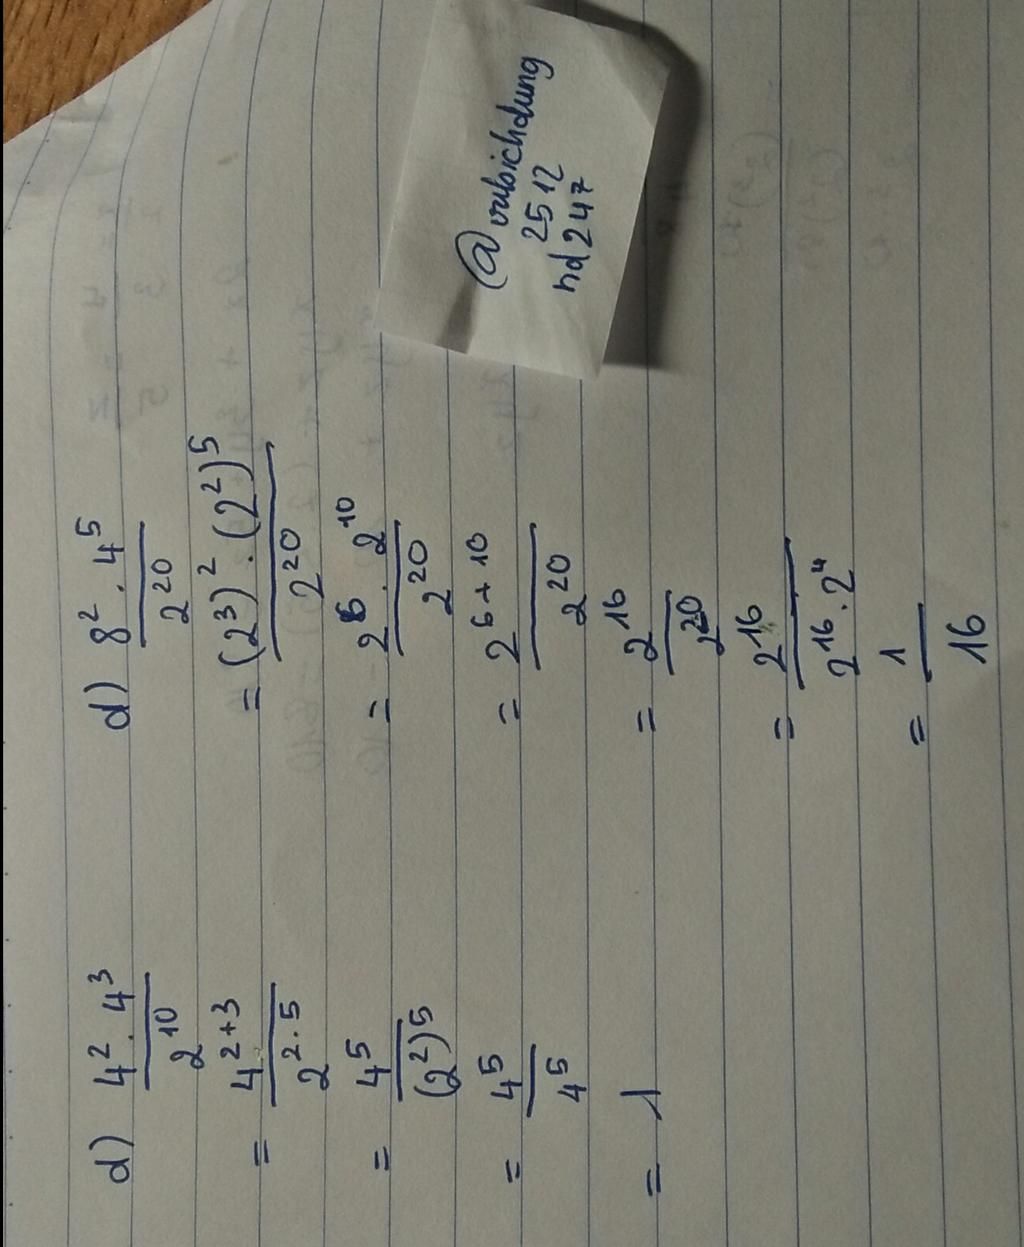 d) 4² . 4³ / 2¹⁰
= 4²⁺³ / 2²·⁵
= 4⁵ / (2²)⁵
= 4⁵ / 4⁵
= 1
d) 8² . 4⁵ / 2²⁰
= (2³)² . (2²)⁵ / 2²⁰
= 2⁶ . 2¹⁰ / 2²⁰
= 2⁶⁺¹⁰ / 2²⁰
= 2¹⁶ / 2²⁰
= 2¹⁶ / 2¹⁶ . 2⁴
= 1 / 16
2512
hd247